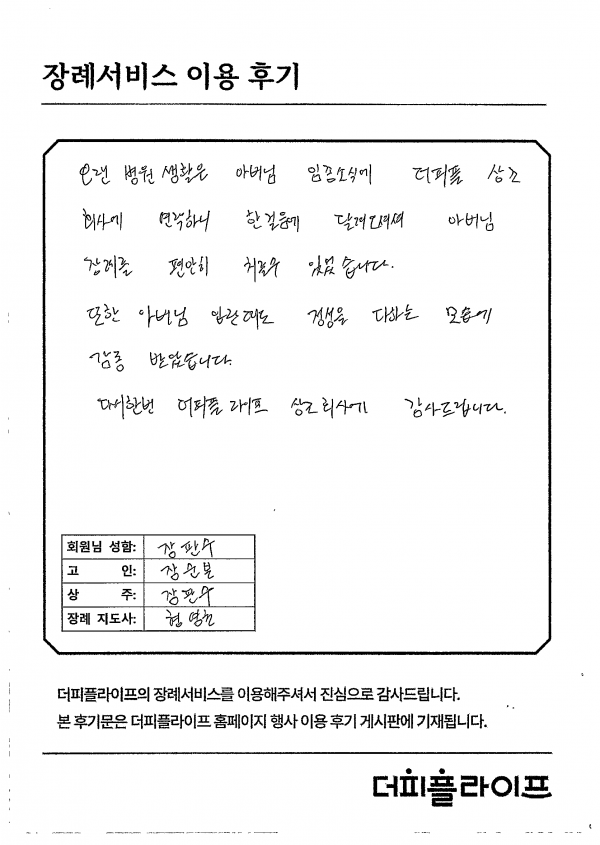 장례서비스 이용 후기
오랜 병원 생활은 아버님 임종소식에 더피플 상조
회사에 연락하니 한걸음에 달려오셔서 아버님
장례를 편안히 치를수 있었습니다.
또한 아버님 입관때도 정성을 다하는 모습에
감동 받았습니다.
다시한번 더피플 라이프 상조회사에 감사드립니다.
회원님 성함: 장판수
고 인: 장운본
상 주: 장판수
장례 지도사:
더피플라이프의 장례서비스를 이용해주셔서 진심으로 감사드립니다.
본 후기문은 더피플라이프 홈페이지 행사 이용 후기 게시판에 기재됩니다.
더피플라이프